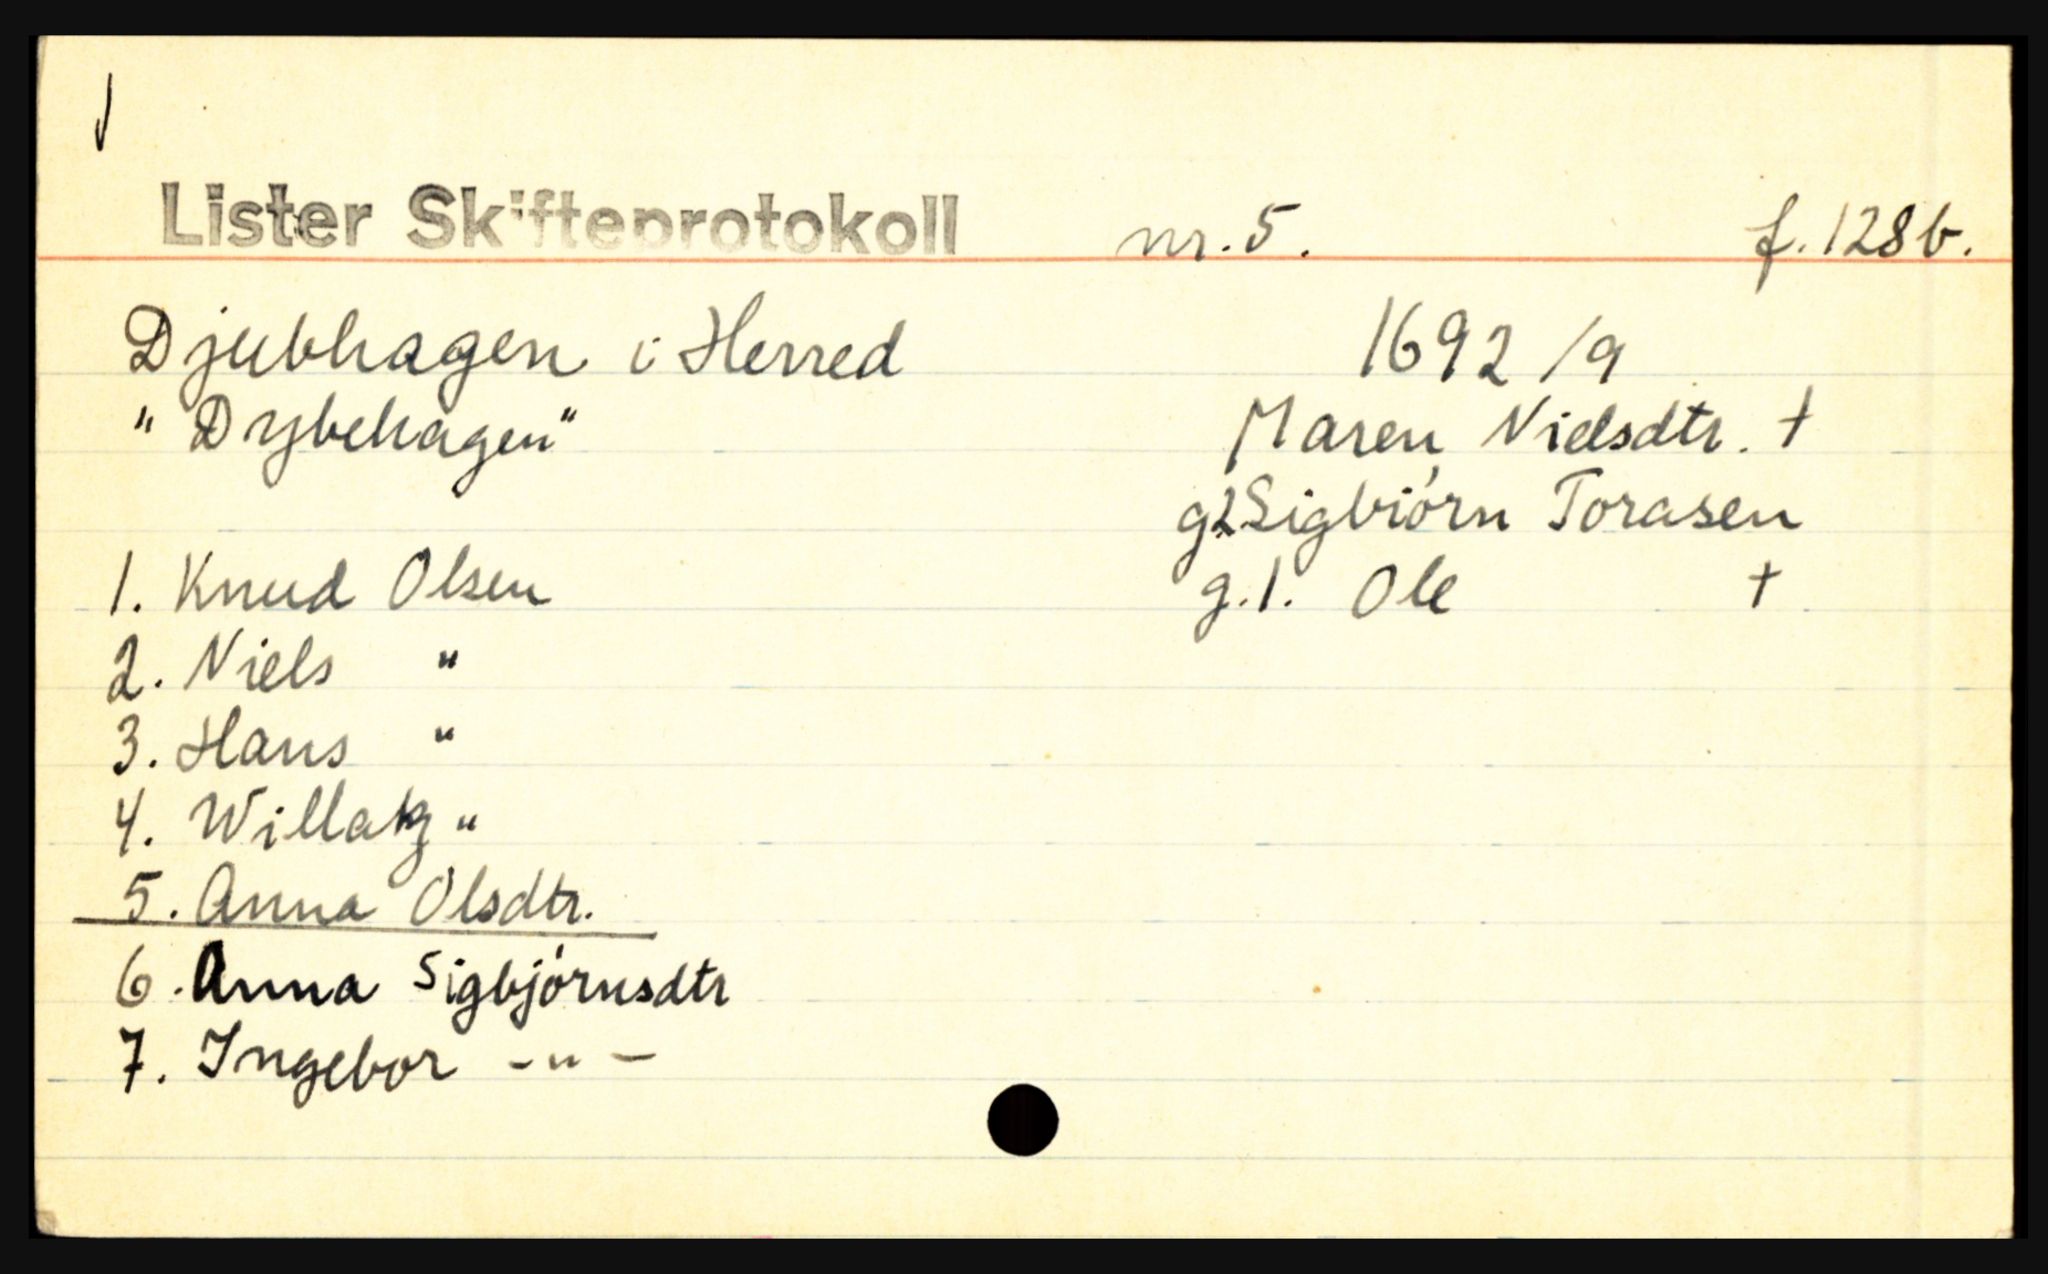 Lister Skifteprotokoll nr. 5. f. 128b.
Djubhagen i Herred 1692/9
"Dybehagen" Maren Nielsdtr. †
g2 Sigbiórn Torasen
1. Knud Olsen g.1. Ole †
2. Niels "
3. Hans "
4. Willatz "
5. Anna Olsdtr.
6. Anna Sigbjórnsdtr
7. Ingebor -"-